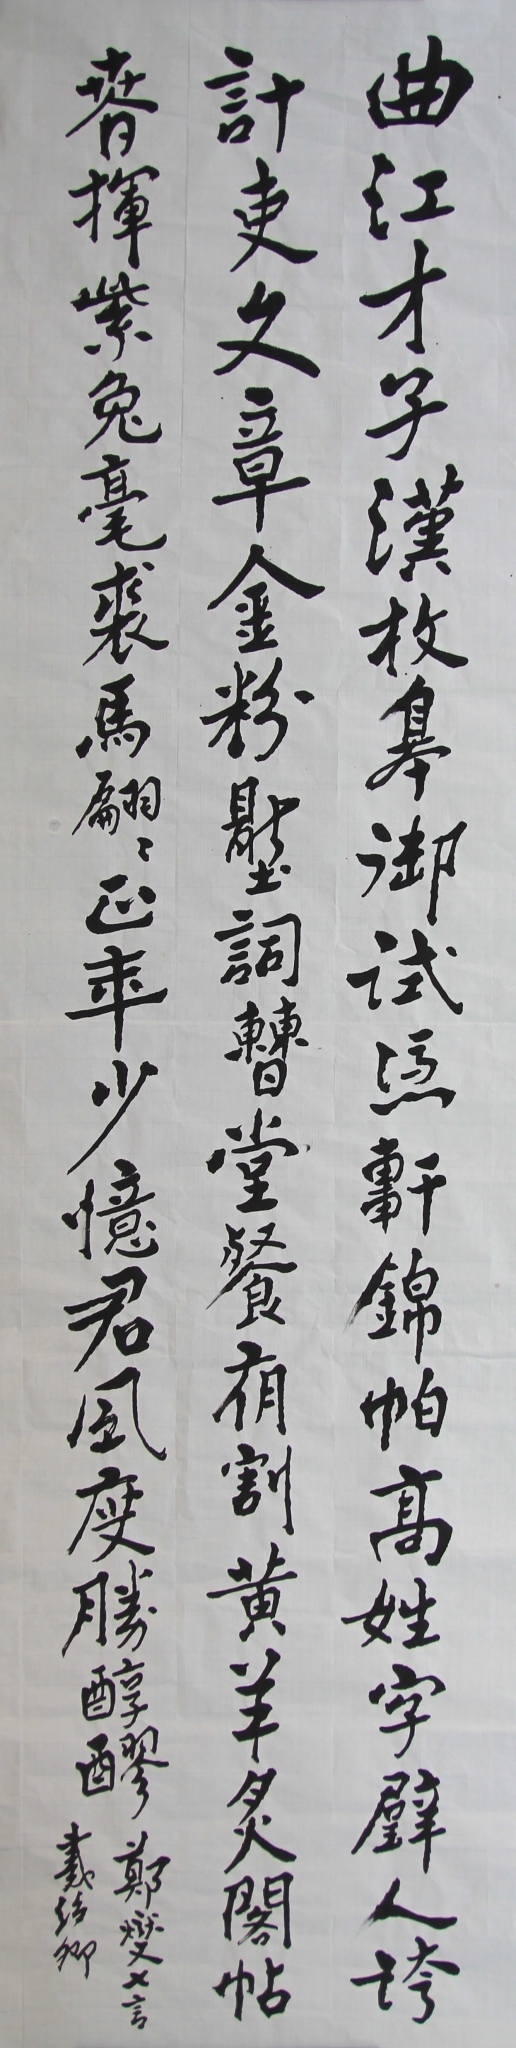 曲江才子漢枚皋御試憑軒錦帕高姓字璧人誇
計吏文章金粉壓詞曹堂餐有割黃羊炙閣帖
春揮紫兔毫裘馬翩〻正年少憶君風度勝醇醪
鄭燮七言
戴 卿